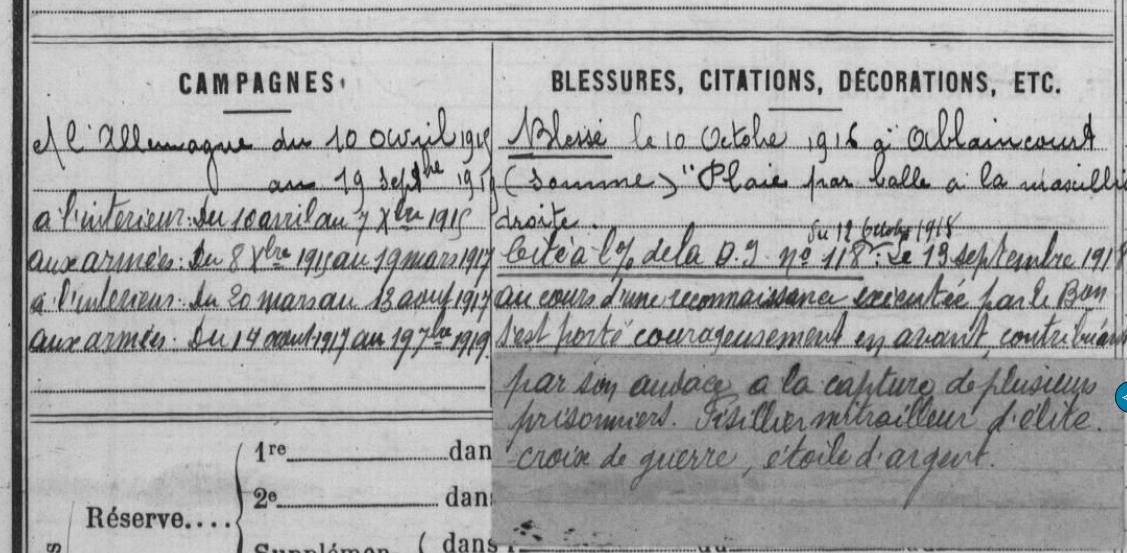 CAMPAGNES
Ct l'Allemagne du 10 avril 1915
au 19 Septbre 1919
a l'interieur: du 10 avril au 7 Xbre 1915
aux armées: Du 8 Xbre 1915 au 19 mars 1917
à l'interieur: du 20 mars au 13 aout 1917
aux armées. Du 14 aout 1917 au 19 7bre 1919
BLESSURES, CITATIONS, DÉCORATIONS, ETC.
Blessé le 10 Octobre 1916 à Ablaincourt
(Somme) "Plaie par balle a la
droite.
du 12 Octobre 1918
Cité à l'O/ de la D.I. n° 118: "Le 13 septembre 1918
au cours d'une reconnaissance exécutée par le Bon
s'est porté courageusement en avant, contribuant
par son audace a la capture de plusieurs
prisonniers. Fusillier mitrailleur d'élite.
croix de guerre, étoile d'argent.
1re dans
Réserve....
2e dans
Supplémen. ( dans l